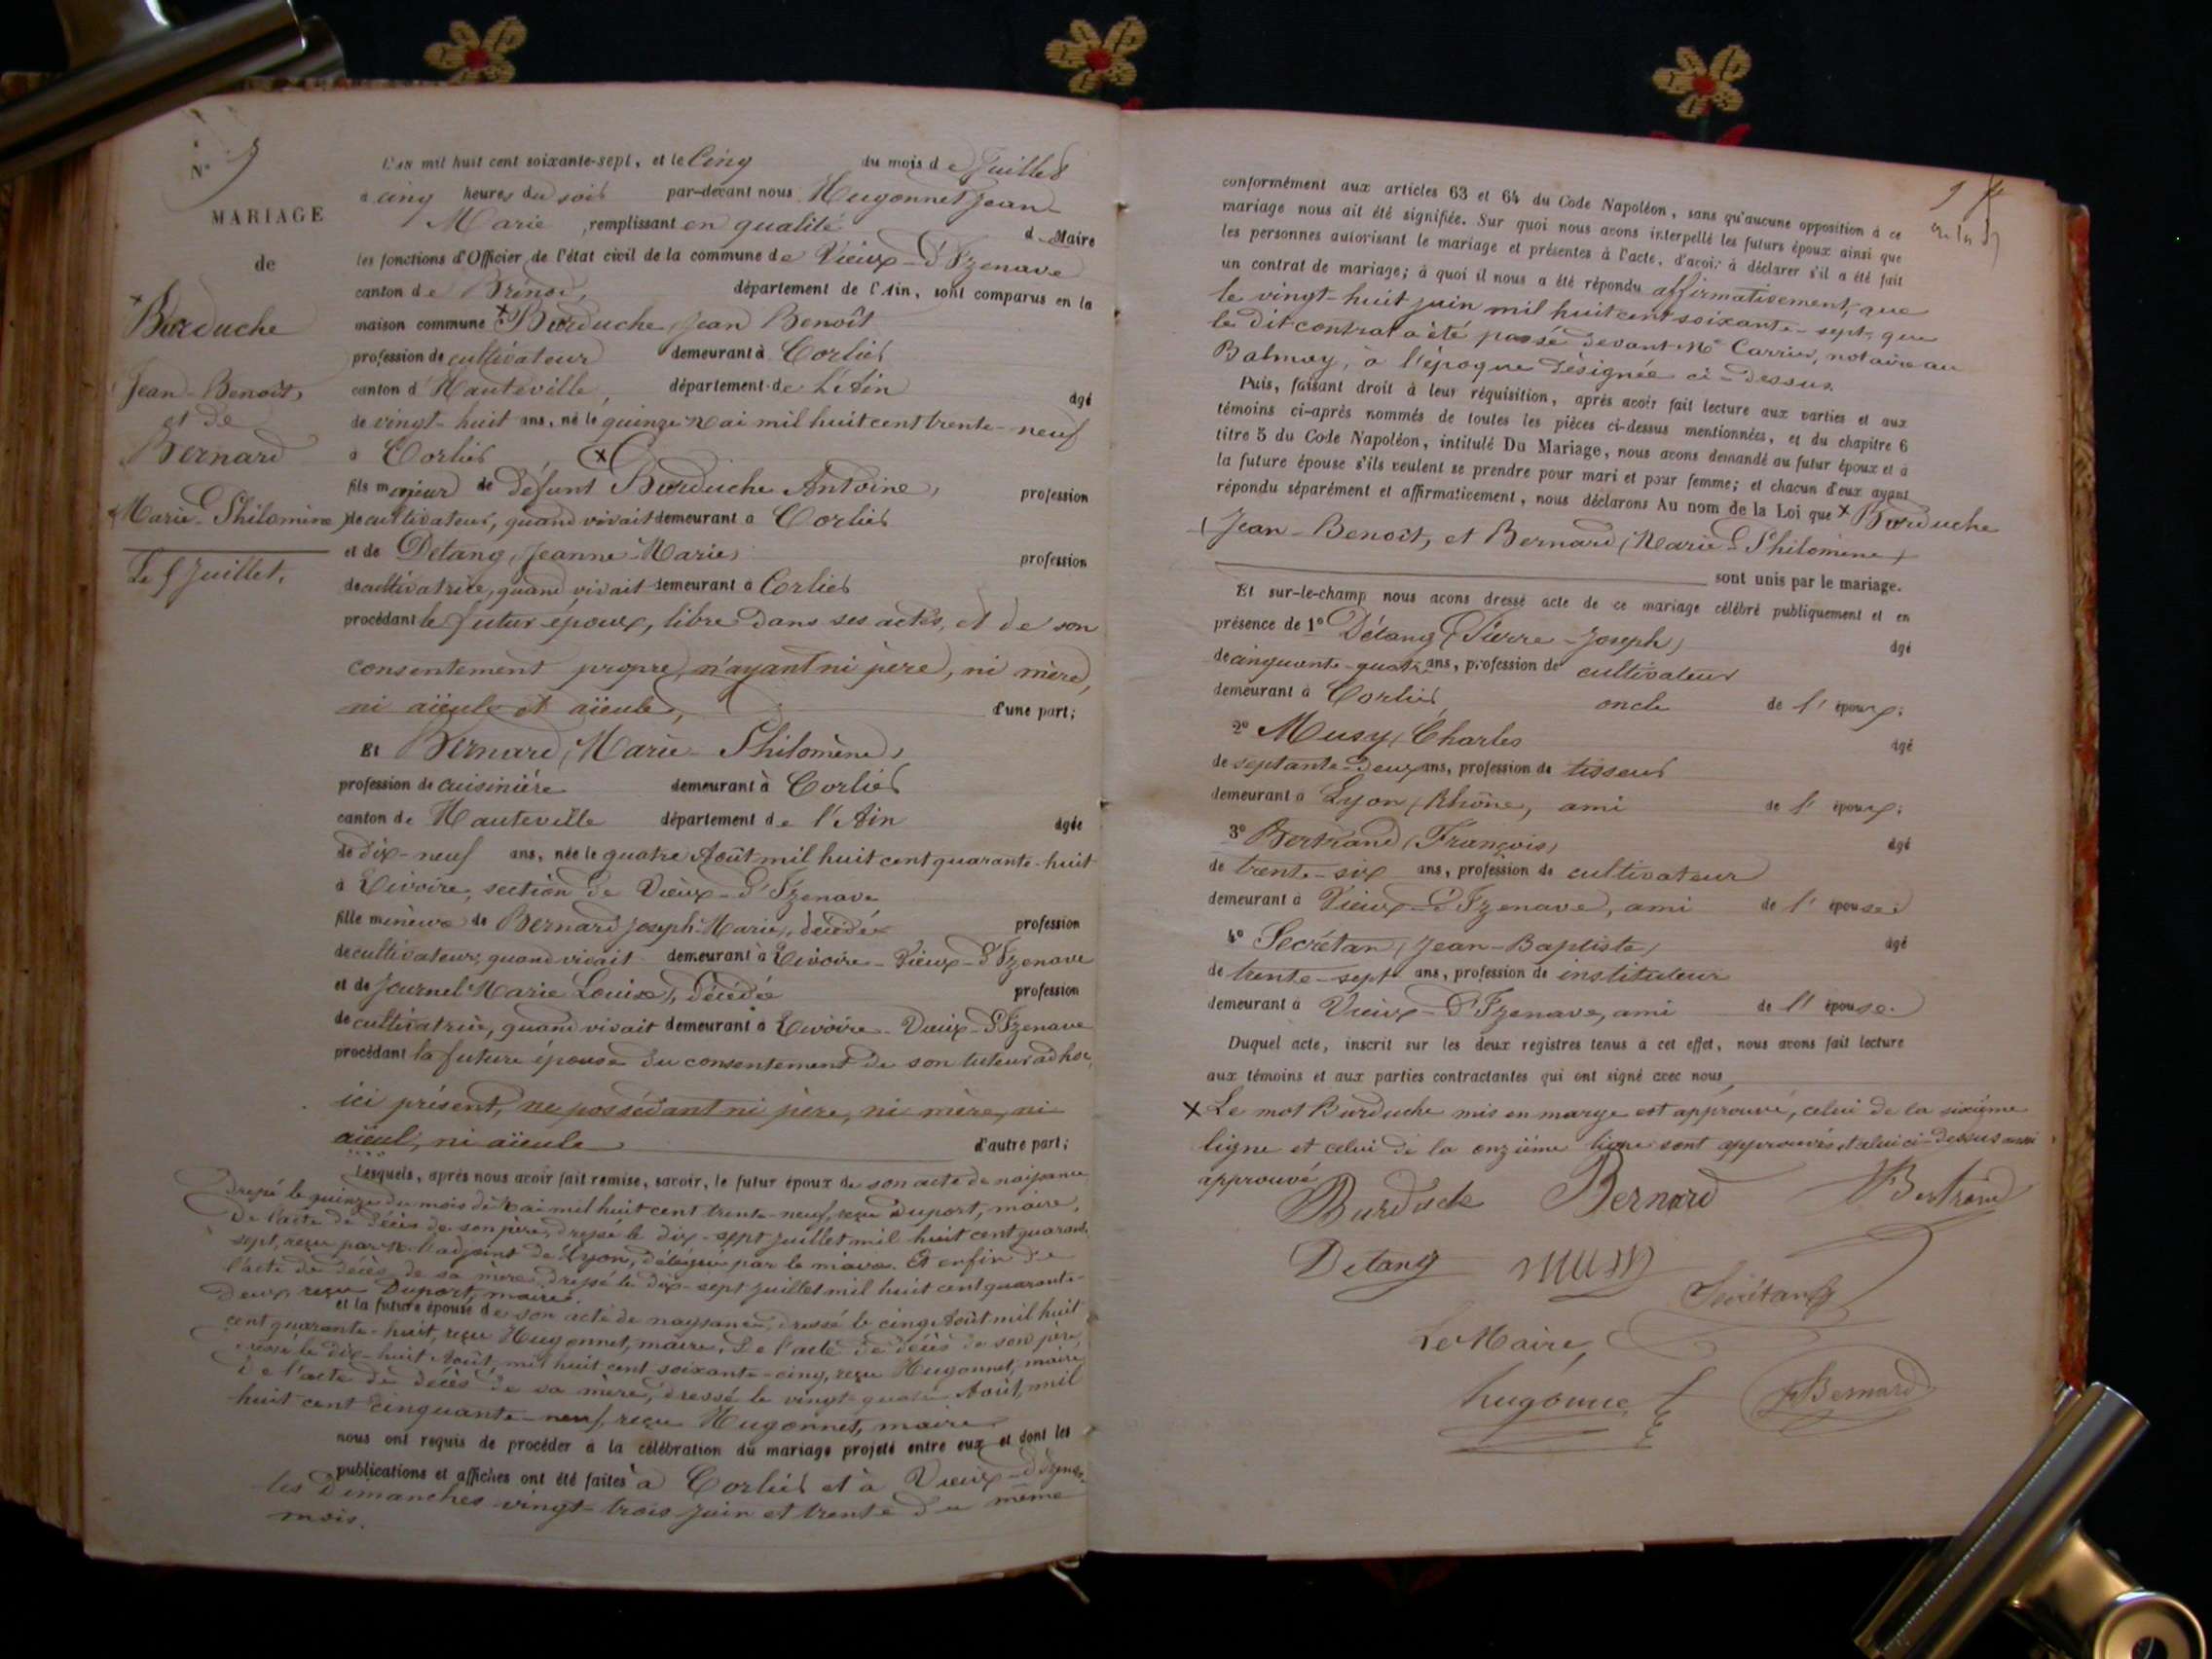 N° 5
MARIAGE
de
× Burduche
Jean-Benoît,
et de
Bernard
Marie-Philomène
Le 5 Juillet.
L'an mil huit cent soixante-sept, et le Cinq du mois de Juillet
à cinq heures du soir par-devant nous Hugonnet Jean-
Marie, remplissant en qualité de Maire
les fonctions d'Officier de l'état civil de la commune de Vieux-d'Izenave
canton de Brénod, département de l'Ain, sont comparus en la
maison commune × Burduche, Jean Benoît
profession de cultivateur demeurant à Corlier
canton d'Hauteville, département de L'Ain âgé
de vingt-huit ans, né le quinze Mai mil huit cent trente-neuf
à Corlier, ×
fils majeur de défunt Burduche Antoine, profession
de cultivateur, quand vivait demeurant à Corlier
et de Détang, Jeanne-Marie, profession
de cultivatrice, quand vivait demeurant à Corlier
procédant le futur époux, libre dans ses actes, et de son
consentement propre, n'ayant ni père, ni mère,
ni aïeule et aïeule, d'une part;
Et Bernard, Marie-Philomène,
profession de cuisinière demeurant à Corlier
canton de Hauteville département de l'Ain âgée
de dix-neuf ans, née le quatre Août mil huit cent quarante-huit
à Livoire, section de Vieux-d'Izenave
fille mineure de Bernard Joseph-Marie, décédé profession
de cultivateur, quand vivait demeurant à Livoire-Vieux-d'Izenave
et de Journel Marie Louise, décédée profession
de cultivatrice, quand vivait demeurant à Livoire-Vieux-d'Izenave
procédant la future épouse du consentement de son tuteur ad hoc,
ici présent, ne possédant ni père, ni mère, ni
aïeul, ni aïeule d'autre part;
Lesquels, après nous avoir fait remise, savoir, le futur époux de son acte de naissance
dressé le quinze du mois de Mai mil huit cent trente-neuf, reçu Duport, maire,
De l'acte de décès de son père, dressé le dix-sept juillet mil huit cent quarante
sept, reçu par M. l'adjoint de Lyon, délégué par le maire. Et enfin de
l'acte de décès de sa mère, dressé le dix-sept juillet mil huit cent quarante-
deux, reçu Duport, maire.
et la future épouse de son acte de naissance, dressé le cinq Août mil huit
cent quarante-huit, reçu Hugonnet, maire, de l'acte de décès de son père,
dressé le dix-huit Août, mil huit cent soixante-cinq, reçu Hugonnet, maire,
de l'acte de décès de sa mère, dressé le vingt-quatre Août, mil
huit cent cinquante-neuf, reçu Hugonnet, maire
nous ont requis de procéder à la célébration du mariage projeté entre eux et dont les
publications et affiches ont été faites à Corlier et à Vieux-d'Izenave
les Dimanches vingt-trois juin et trente du même
mois.
conformément aux articles 63 et 64 du Code Napoléon, sans qu'aucune opposition à ce
mariage nous ait été signifiée. Sur quoi nous avons interpellé les futurs époux ainsi que
les personnes autorisant le mariage et présentes à l'acte, d'avoir à déclarer s'il a été fait
un contrat de mariage; à quoi il nous a été répondu affirmativement, que
le vingt-huit juin mil huit cent soixante-sept, que
le dit contrat a été passé devant Me Carrier, notaire au
Balmay, à l'époque désignée ci-dessus.
Puis, faisant droit à leur réquisition, après avoir fait lecture aux parties et aux
témoins ci-après nommés de toutes les pièces ci-dessus mentionnées, et du chapitre 6
titre 5 du Code Napoléon, intitulé Du Mariage, nous avons demandé au futur époux et à
la future épouse s'ils veulent se prendre pour mari et pour femme; et chacun d'eux ayant
répondu séparément et affirmativement, nous déclarons Au nom de la Loi que × Burduche
Jean-Benoît, et Bernard, Marie-Philomène,
sont unis par le mariage.
Et sur-le-champ nous avons dressé acte de ce mariage célébré publiquement et en
présence de 1° Détang (Pierre-Joseph) âgé
de cinquante-quatre ans, profession de cultivateur
demeurant à Corlier, oncle de l'époux;
2° Musy, Charles âgé
de septante-deux ans, profession de tisseur
demeurant à Lyon, Rhône, ami de l'époux;
3° Bertrand (François) âgé
de trente-six ans, profession de cultivateur
demeurant à Vieux-d'Izenave, ami de l'épouse;
4° Secrétan, Jean-Baptiste, âgé
de trente-sept ans, profession de instituteur
demeurant à Vieux-d'Izenave, ami de l'épouse.
Duquel acte, inscrit sur les deux registres tenus à cet effet, nous avons fait lecture
aux témoins et aux parties contractantes qui ont signé avec nous
× Le mot Burduche mis en marge est approuvé, celui de la sixième
ligne et celui de la onzième ligne sont approuvés et celui ci-dessus aussi
approuvé
Burduche Bernard Bertrand
Detang Musy Secrétan
Le Maire,
hugonnet Bernard